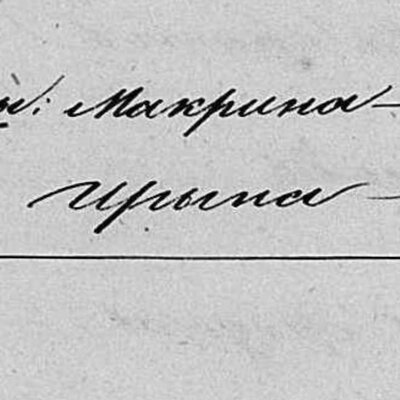 Макрина —
Ирына —